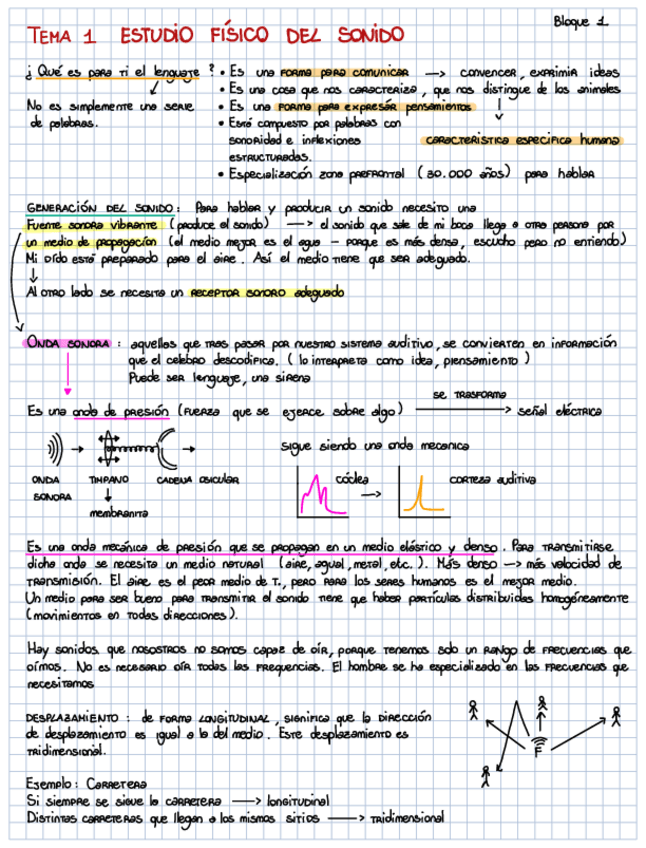 Bloque 1
TEMA 1 ESTUDIO FÍSICO DEL SONIDO
¿Qué es para ti el lenguaje? • Es una forma para comunicar → convencer, exprimir ideas
• Es una cosa que nos caracteriza, que nos distingue de los animales
No es simplemente una serie • Es una forma para expresar pensamientos
de palabras. • Está compuesto por palabras con
sonoridad e inflexiones característica específica humana
estructuradas.
• Especialización zona prefrontal (30.000 años) para hablar
GENERACIÓN DEL SONIDO: Para hablar y producir un sonido necesito una
Fuente sonora vibrante (produce el sonido) → el sonido que sale de mi boca llega a otra persona por
un medio de propagación (el medio mejor es el agua - porque es más densa, escucho pero no entiendo)
Mi oído está preparado para el aire. Así el medio tiene que ser adecuado.
Al otro lado se necesita un receptor sonoro adeguado
ONDA SONORA: aquellas que tras pasar por nuestro sistema auditivo, se convierten en información
que el celebro descodifica. (lo interpreta como idea, piensamiento)
Puede ser lenguaje, una sirena
se trasforma
Es una onda de presión (fuerza que se ejerce sobre algo) → señal eléctrica
sigue siendo una onda mecanica
ONDA TIMPANO CADENA OSICULAR cóclea → corteza auditiva
SONORA
membranita
Es una onda mecánica de presión que se propagan en un medio elástico y denso. Para transmitirse
dicha onda se necesita un medio natural (aire, agual, metal, etc.). Más denso → más velocidad de
transmisión. El aire es el peor medio de t., pero para los seres humanos es el mejor medio.
Un medio para ser bueno para transmitir el sonido tiene que haber partículas distribuidas homogéneamente
(movimientos en todas direcciones).
Hay sonidos que nosostros no somos capaz de oír, porque tenemos solo un rango de frecuencias que
oímos. No es necesario oír todas las frequencias. El hombre se ha especializado en las frecuencias que
necesitamos
DESPLAZAMIENTO: de forma LONGITUDINAL, significa que la dirección
de desplazamiento es igual a la del medio. Este desplazamiento es
tridimensional.
F
Esempio: Carretera
Si siempre se sigue la carretera → longitudinal
Distintas carreteras que llegan a los mismos sitios → tridimensional